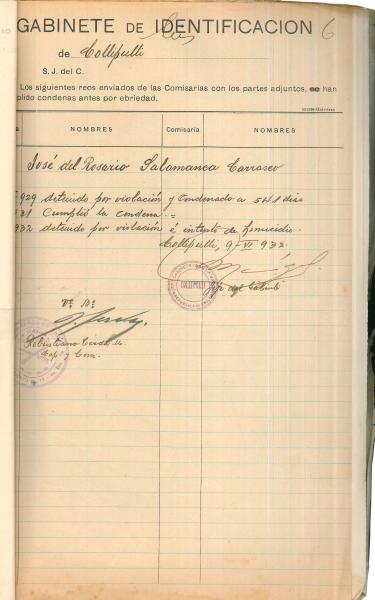 GABINETE DE IDENTIFICACION 6
de Collipulli
S. J. del C.
Los siguientes reos enviados de las Comisarías con los partes adjuntos, se han
plido condenas antes por ebriedad.
NOMBRES Comisaría NOMBRES
José del Rosario Salamanca Carrasco
929 detenido por violación y condenado a 541 dias
31 Cumplió la condena.
932 detenido por violación é intento de homicidio.
Collipulli, 9-VI-932.
COLLIPULLI
Jefe del Gabinete
Vº Bº